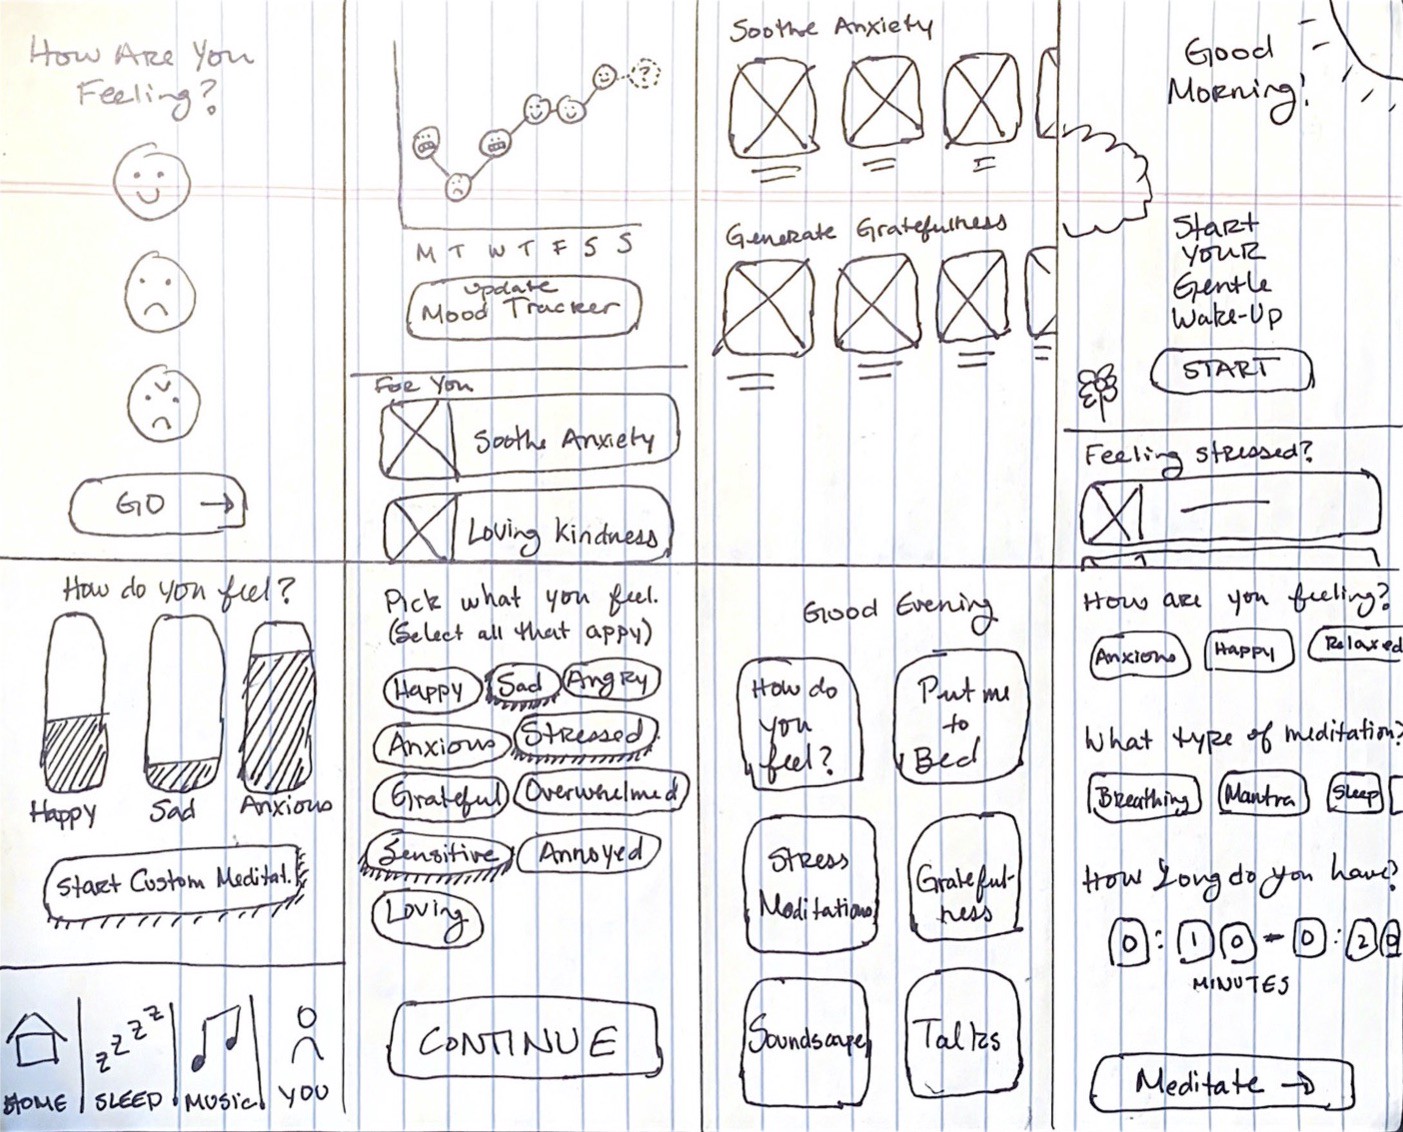 How Are You
Feeling?
GO →
?
M T W T F S S
update
Mood Tracker
For You
Soothe Anxiety
Loving Kindness
Soothe Anxiety
Generate Gratefulness
Good
Morning!
Start
Your
Gentle
Wake-Up
START
Feeling stressed?
How do you feel?
Happy
Sad
Anxious
Start Custom Meditat.
HOME
zzzz
SLEEP
MUSIC
YOU
Pick what you feel.
(Select all that appy)
Happy
Sad
Angry
Anxious
Stressed
Grateful
Overwhelmed
Sensitive
Annoyed
Loving
CONTINUE
Good Evening
How do
you
feel?
Put me
to
Bed
Stress
Meditations
Grateful-
ness
Soundscape
Talks
How are you feeling?
Anxious
Happy
Relaxed
What type of meditation?
Breathing
Mantra
Sleep
How Long do you have?
0:10-0:20
MINUTES
Meditate →